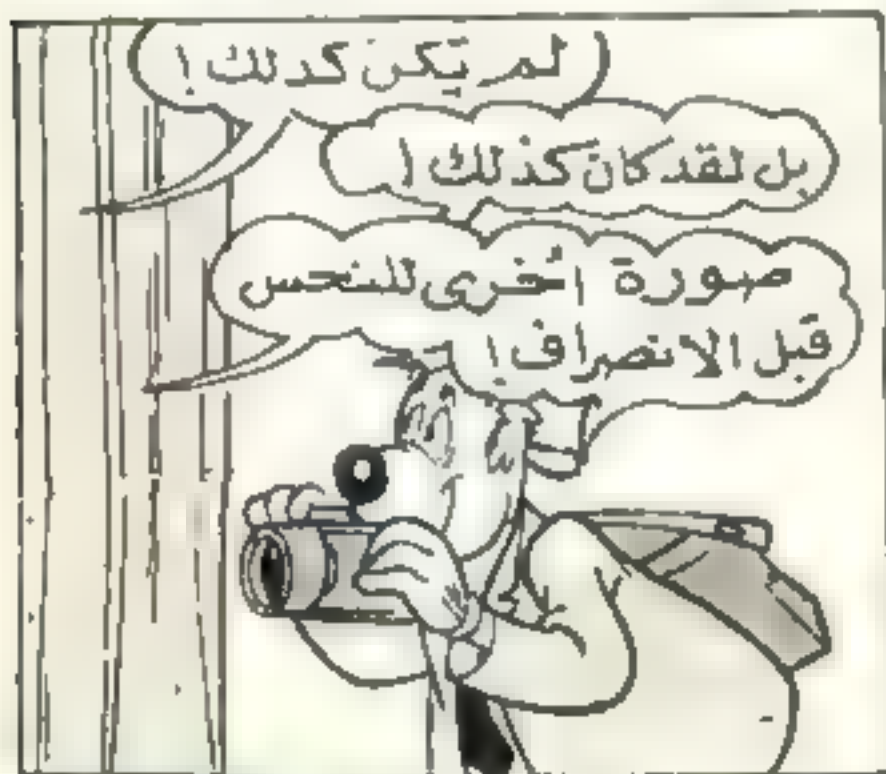 لم يكن كدلك !
بل لقد كان كذلك !
صورة أخرى للنحس
قبل الانصراف !